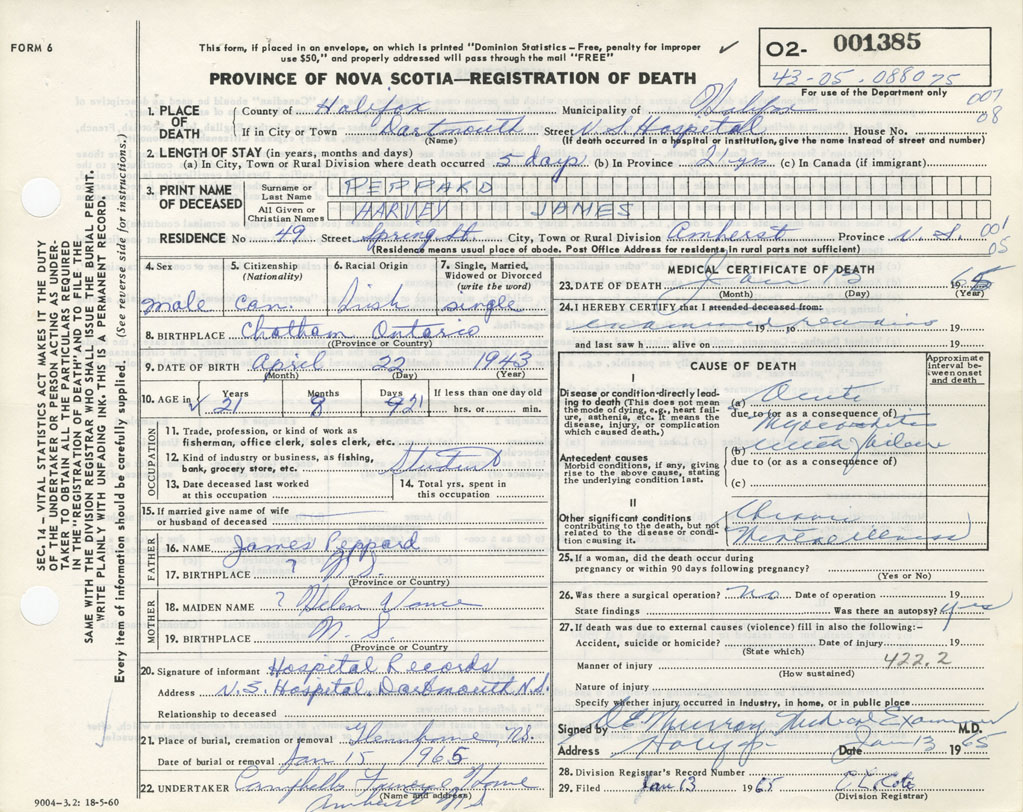 FORM 6
This form, if placed in an envelope, on which is printed "Dominion Statistics – Free, penalty for improper
use $50," and properly addressed will pass through the mail "FREE"
✓
O2- 001385
43-05-088075
For use of the Department only
PROVINCE OF NOVA SCOTIA—REGISTRATION OF DEATH
007
08
1. PLACE OF DEATH
County of Halifax Municipality of Halifax
If in City or Town Dartmouth Street N.S. Hospital House No.
(Name) (If death occurred in a hospital or institution, give the name instead of street and number)
2. LENGTH OF STAY (in years, months and days)
(a) In City, Town or Rural Division where death occurred 5 days (b) In Province 21 yrs (c) In Canada (if immigrant)
3. PRINT NAME OF DECEASED
Surname or Last Name PEPPARD
All Given or Christian Names HARVEY JAMES
RESIDENCE No 49 Street Spring St City, Town or Rural Division Amherst Province N.S. 001
05
(Residence means usual place of abode. Post Office Address for residents in rural parts not sufficient)
4. Sex 5. Citizenship (Nationality) 6. Racial Origin 7. Single, Married, Widowed or Divorced (write the word)
male Can. Irish single
8. BIRTHPLACE Chatham Ontario
(Province or Country)
9. DATE OF BIRTH April 22 1943
(Month) (Day) (Year)
10. AGE in Years Months Days If less than one day old
21 8 21 hrs. or min.
OCCUPATION
11. Trade, profession, or kind of work as
fisherman, office clerk, sales clerk, etc.
12. Kind of industry or business, as fishing,
bank, grocery store, etc. Student
13. Date deceased last worked
at this occupation
14. Total yrs. spent in
this occupation
15. If married give name of wife
or husband of deceased
FATHER
16. NAME James Peppard
17. BIRTHPLACE ? N.S.
(Province or Country)
MOTHER
18. MAIDEN NAME ? Helen Vance
19. BIRTHPLACE N. S.
(Province or Country
20. Signature of informant Hospital Records
Address N.S. Hospital, Dartmouth N.S.
Relationship to deceased
21. Place of burial, cremation or removal N.S.
Date of burial or removal Jan 15 1965
22. UNDERTAKER Campbells Funeral Home
(Name and address)
Amherst N.S.
MEDICAL CERTIFICATE OF DEATH
23. DATE OF DEATH Jan 13 1965
(Month) (Day) (Year)
24. I HEREBY CERTIFY that I attended deceased from:
examined remains 19 to 19
and last saw h alive on 19
CAUSE OF DEATH
Approximate interval between onset and death
I
Disease or condition directly leading to death (This does not mean
the mode of dying, e.g., heart failure, asthenia, etc. It means the
disease, injury, or complication
which caused death.)
(a) Acute
due to (or as a consequence of)
Myocarditis
Antecedent causes
Morbid conditions, if any, giving
rise to the above cause, stating
the underlying condition last.
(b) failure
due to (or as a consequence of)
(c)
II
Other significant conditions
contributing to the death, but not
related to the disease or condition causing it.
Chronic
Mental illness
25. If a woman, did the death occur during
pregnancy or within 90 days following pregnancy?
(Yes or No)
26. Was there a surgical operation? no Date of operation 19
State findings Was there an autopsy? yes
27. If death was due to external causes (violence) fill in also the following:–
Accident, suicide or homicide? Date of injury 19
(State which)
Manner of injury 422.2
(How sustained)
Nature of injury
Specify whether injury occurred in industry, in home, or in public place
Signed by D E. Murray Medical Examiner M.D.
Address Date Jan 13 1965
28. Division Registrar's Record Number
29. Filed Jan 13 1965 Cote
(Division Registrar)
SEC. 14 – VITAL STATISTICS ACT MAKES IT THE DUTY
OF THE UNDERTAKER OR PERSON ACTING AS UNDERTAKER TO OBTAIN ALL THE PARTICULARS REQUIRED
IN THE "REGISTRATION OF DEATH" AND TO FILE THE
SAME WITH THE DIVISION REGISTRAR WHO SHALL ISSUE THE BURIAL PERMIT.
WRITE PLAINLY WITH UNFADING INK. THIS IS A PERMANENT RECORD.
Every item of information should be carefully supplied. (See reverse side for instructions.)
9004-3.2: 18-5-60